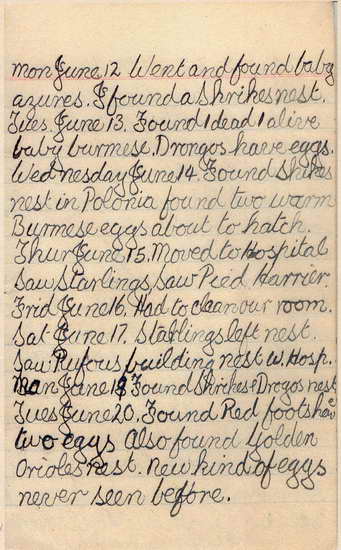 Mon June 12 Went and found baby
azures. I found a Shrikes nest.
Tues. June 13. Found 1 dead 1 alive
baby burmese. Drongos have eggs.
Wednesday June 14. Found Shikes
nest in Polonia found two warm
Burmese eggs about to hatch.
Thur June 15. Moved to Hospital
Saw Starlings, Saw Pied harrier.
Frid June 16. Had to clean our room.
Sat June 17. Starlings left nest.
Saw Rufous building nest W. Hosp.
Mon June 19 Found Shrikes & Drogos nest
Tues June 20. Found Red foots have
two eggs Also found Golden
Orioles nest. New kind of eggs
never seen before.